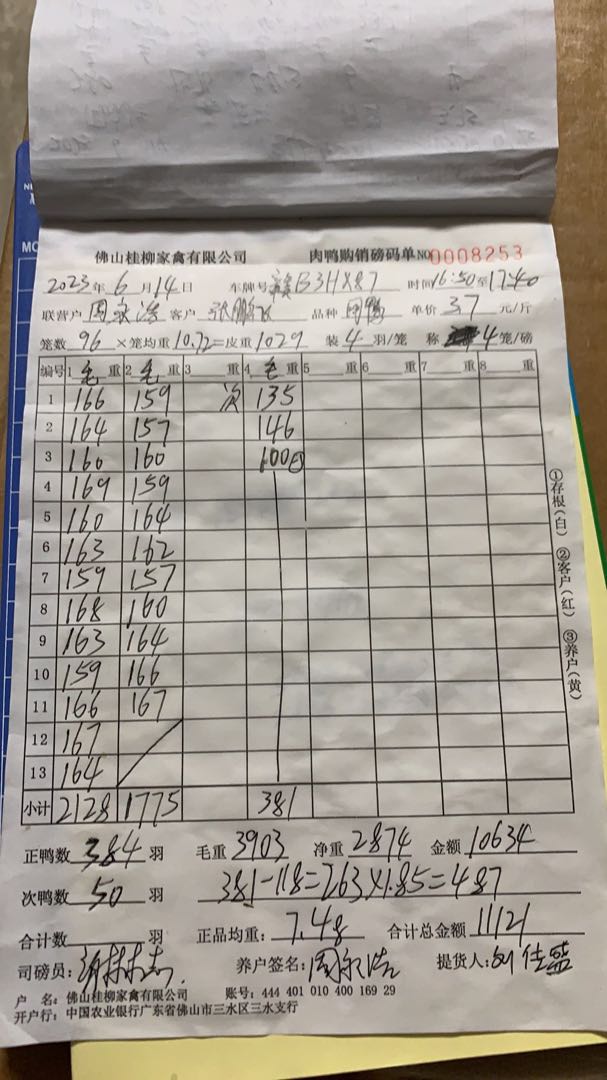 佛山桂柳家禽有限公司 肉鸭购销磅码单 NO 0008253
2023年6月14日 车牌号 B3H×87 时间16:50至17:40
联营户 周 浩 客户 张鹏飞 品种 单价 3.7 元/斤
笼数 96 ×笼均重 10.72=皮重 1029 装 4 羽/笼 称 4 笼/磅
编号 1 毛 重 2 毛 重 3 重 4 毛 重 5 重 6 重 7 重 8 重
1 166 159 次 135
2 164 157 146
3 160 160 100
4 169 159
5 160 164
6 163 162
7 159 157
8 168 160
9 163 164
10 159 166
11 166 167
12 167
13 164
小计 2128 1775 381
正鸭数 384 羽 毛重 3903 净重 2874 金额 10634
次鸭数 50 羽 381-118=263×1.85=487
合计数 羽 正品均重: 7.48 合计总金额 11121
司磅员: 养户签名: 周 浩 提货人: 刘佳盛
户 名: 佛山桂柳家禽有限公司 账号: 444 401 010 400 169 29
开户行: 中国农业银行广东省佛山市三水区三水支行
①存根(白) ②客户(红) ③养户(黄)